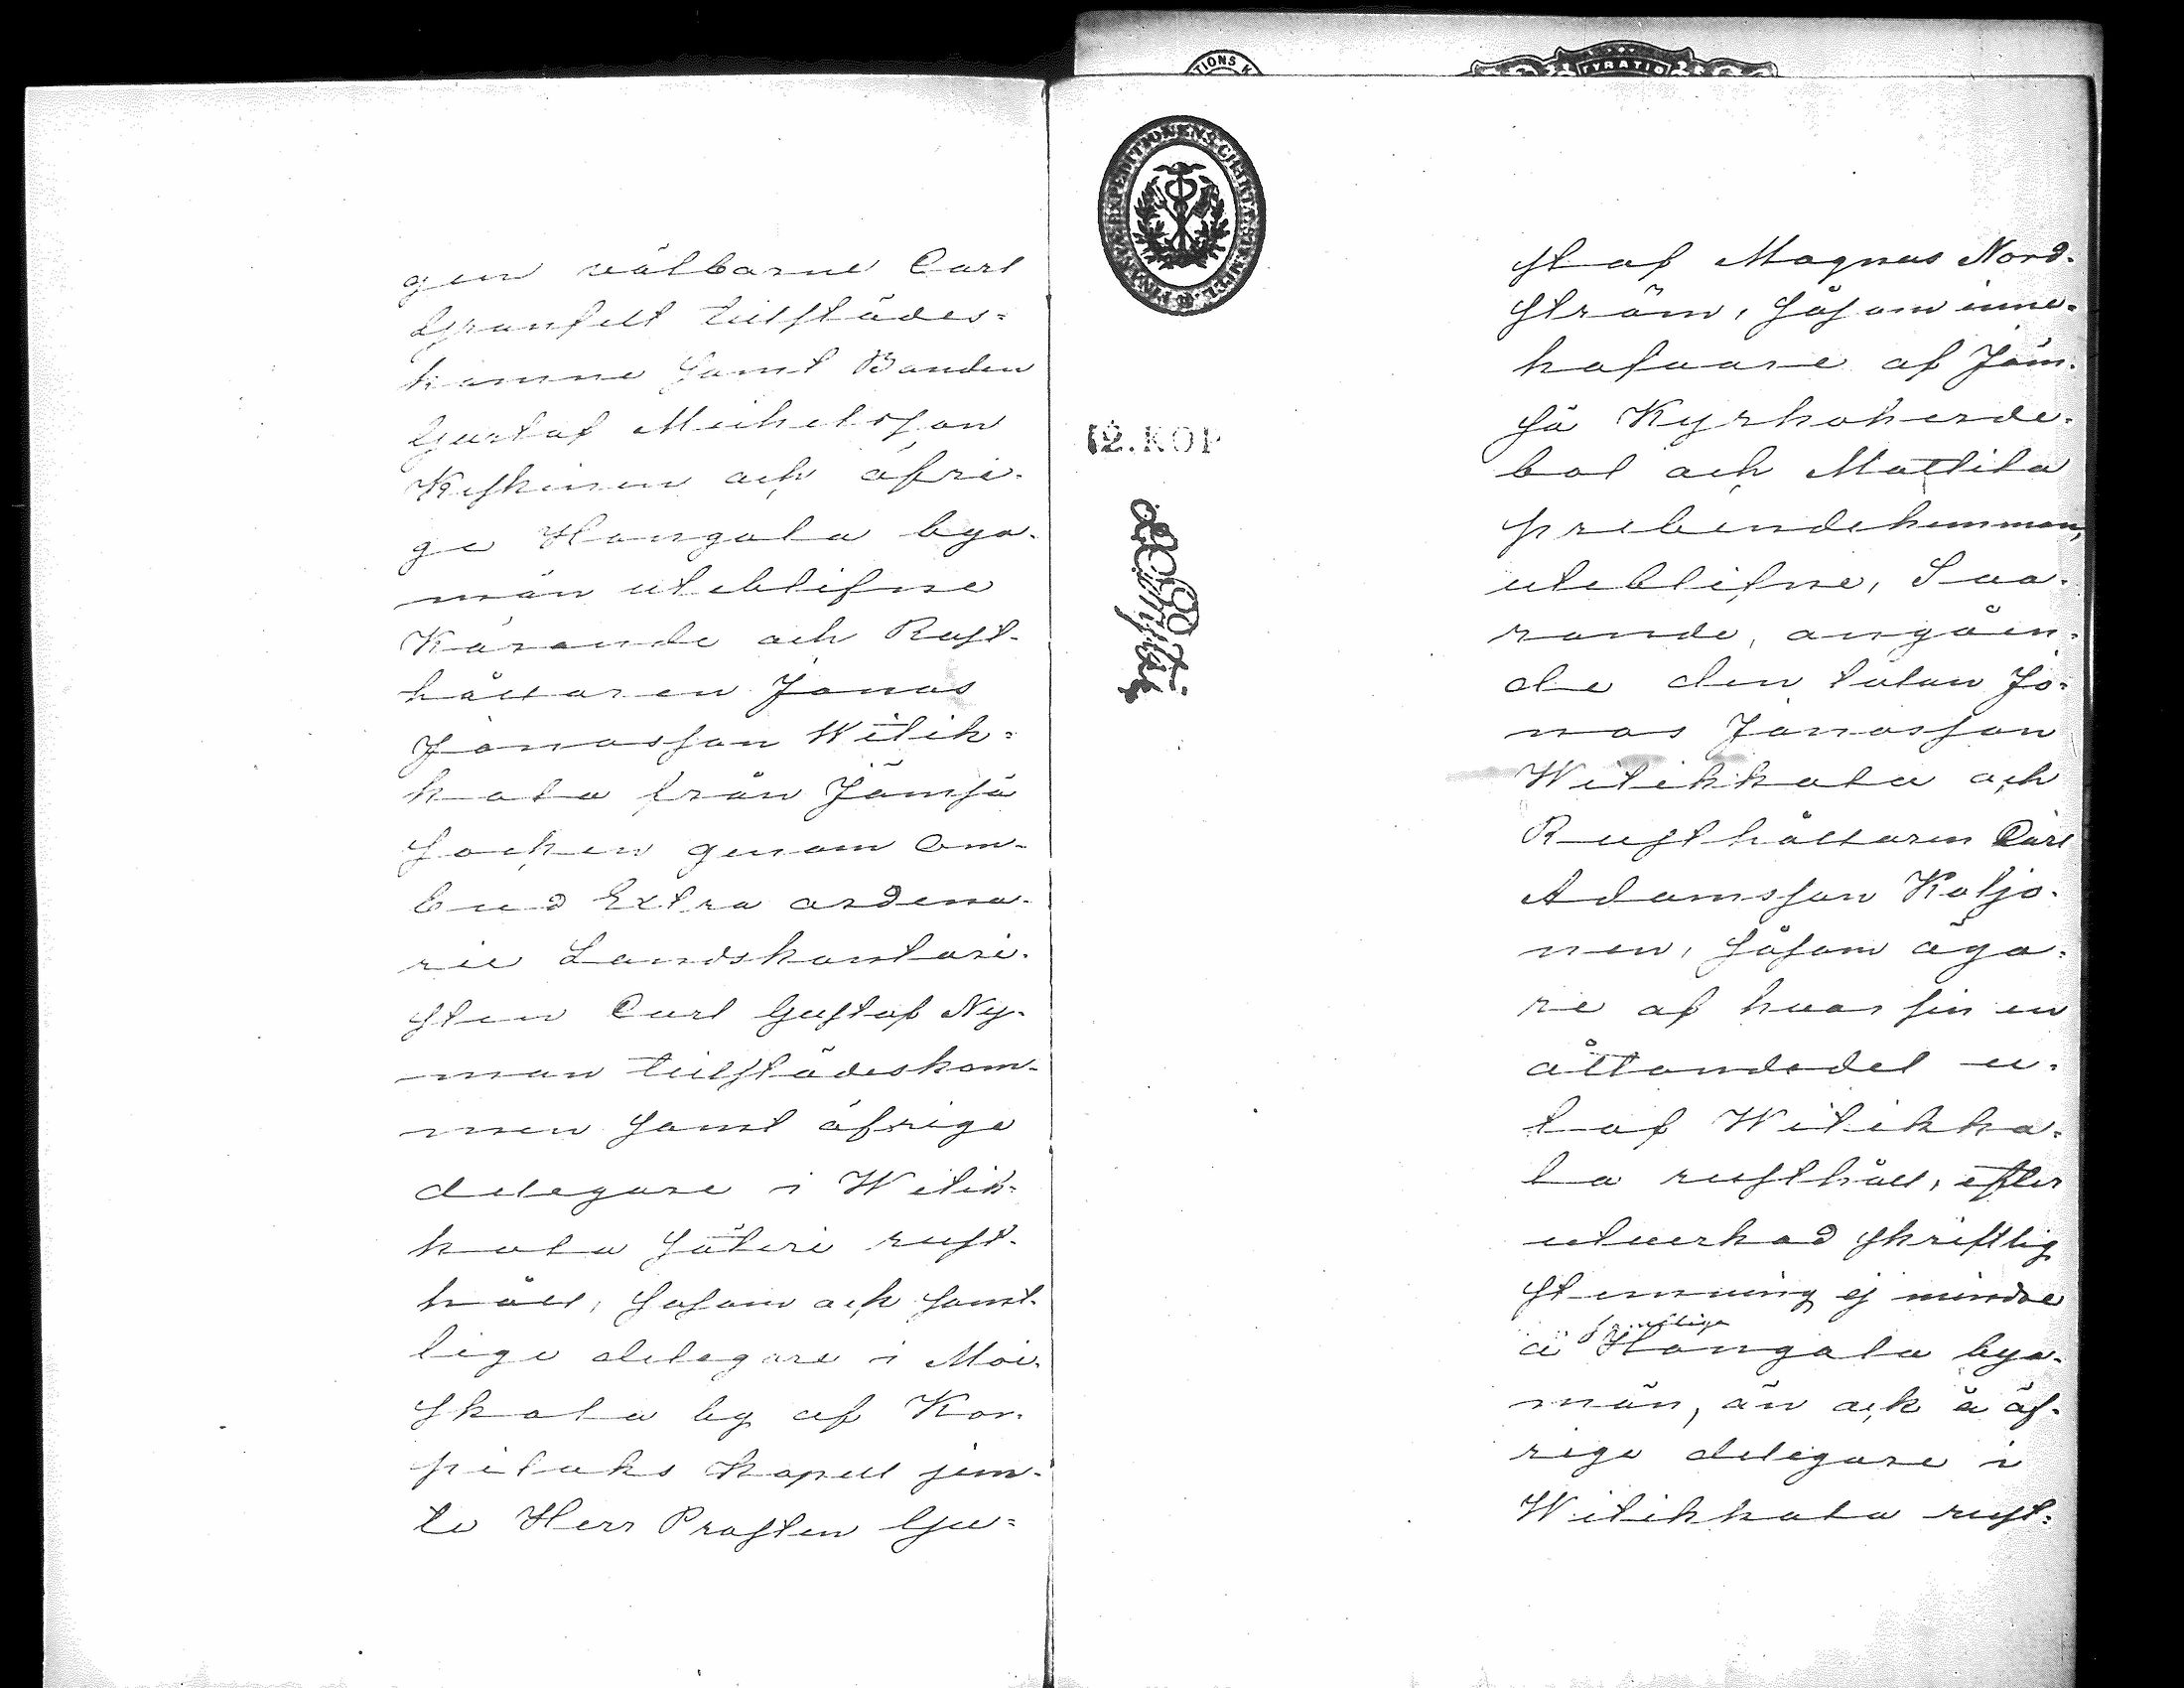 gen välborne Carl
Granfelt tillstädes-
komne samt Bonden
Gustaf Michelsson
Keskinen och öfri-
ge Hangala bya-
män uteblifne
Kärande och Rust-
hållaren Jonas
Jonasson Witik-
kala från Jämsä
Socken genom Om-
bud Extra ordena-
rie Landskontori-
sten Carl Gustaf Ny-
man tillstädeskom-
men samt öfrige
delegare i Witik-
kala Säteri rust-
håll, såsom ock samt-
lige delegare i Moi-
skala by af Kor-
pilaks Kapell jem-
te Herr Prosten Gu-
FINANS-EXPEDITIONENS CHARTÆ STEMPEL
12. KOP
staf Magnus Nord-
ström, såsom inne-
hafvare af Jäm-
sä Kyrkoherde-
bol och Mattila
prebendehemman,
uteblifne, Sva-
rande, angåen-
de den talan Jo-
nas Jonasson
Witikkala och
Rusthållaren Carl
Adamsson Koljo-
nen, såsom äga-
re af hvar sin en
åttondedel u-
taf Witikka-
la rusthåll, efter
utverkad skriftlig
stemning ej mindre
å samtlige Hangala bya-
män, än ock å öf-
rige delegare i
Witikkala rust-